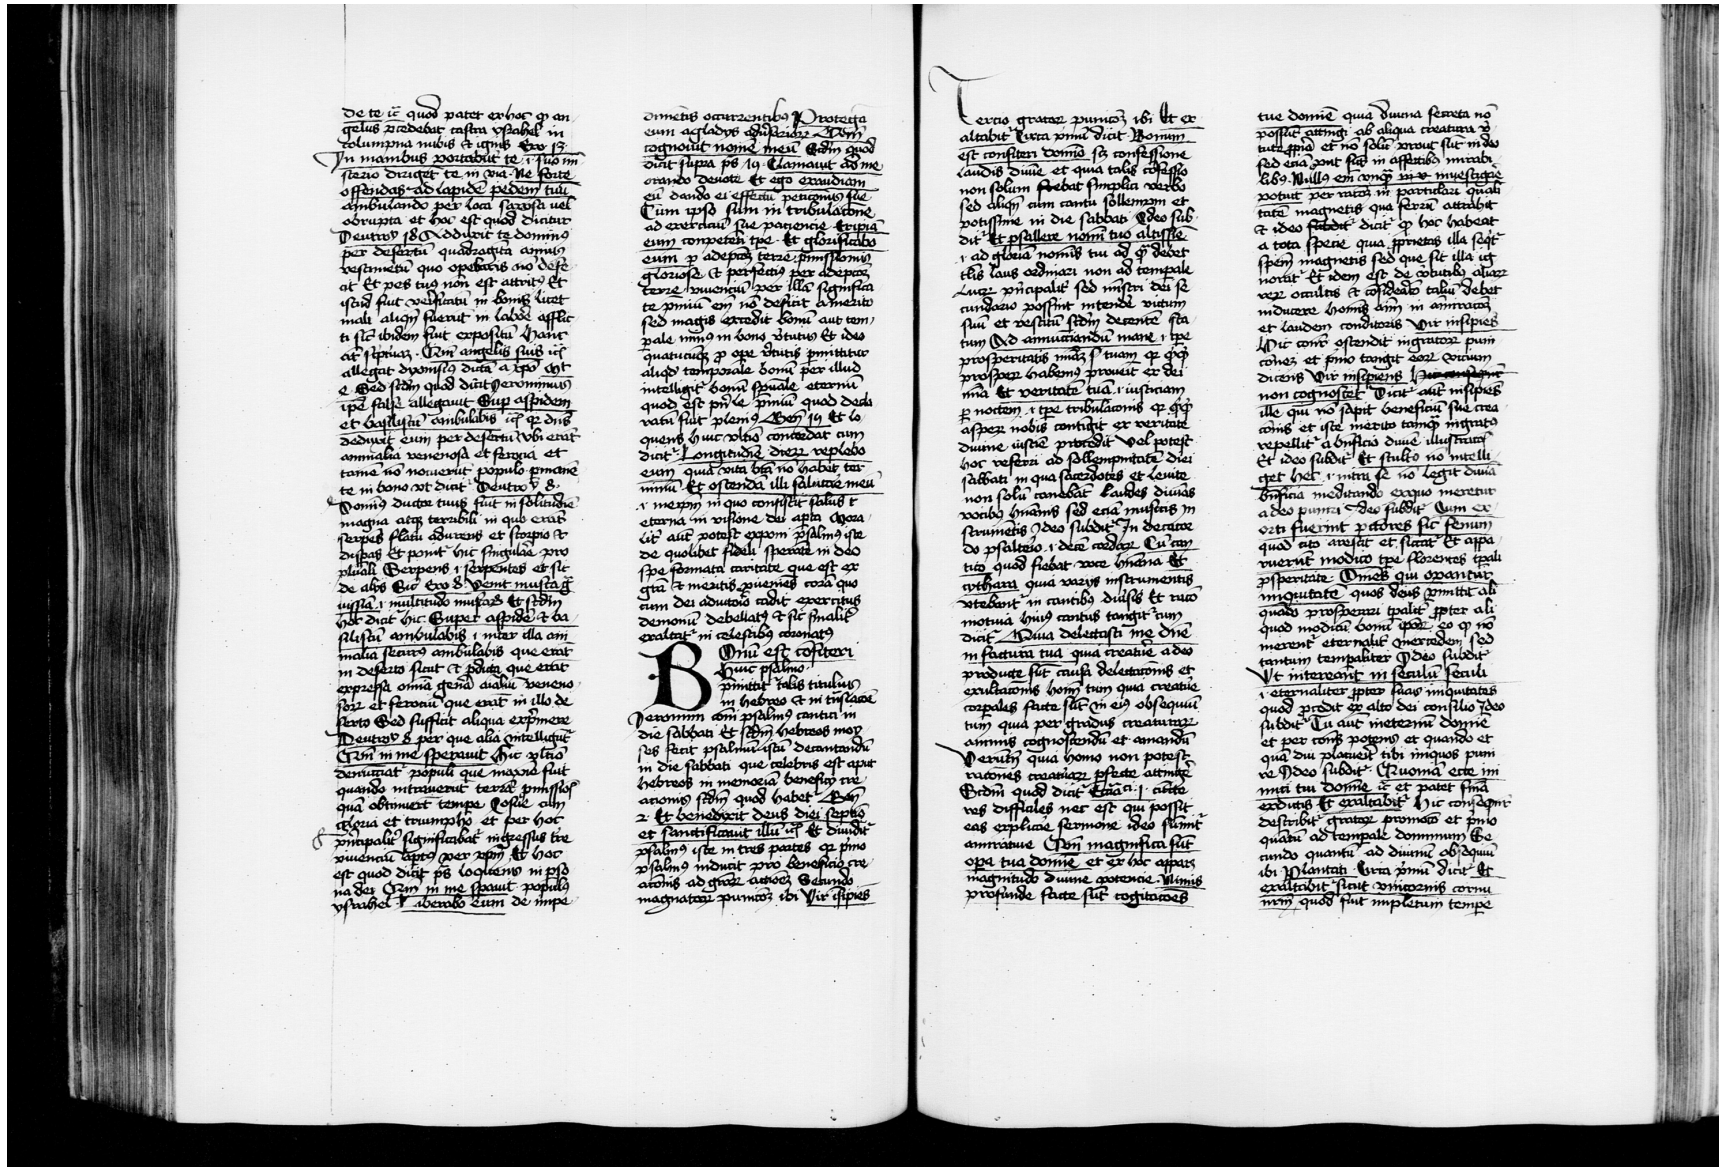 de te ic̄ quod patet ex hoc q̄ an
gelus p̄cedebat castra ysrahel in
columpna nubis & ignis Exo 13
In manibus portabūt te .i. suo mi
sterio diriget te in via. Ne forte
offendas ad lapidē pedem tuū
ambulando per loca saxosa vel
obrupta et hoc est quod dicitur
Deutroº 18 Adduxit te dominus
per desertū quadraginta annis
vestimētū quo opebaris nō defe
cit Et pes tuus non est attritus Et
istud fuit verificatū in bonis licet
mali aliqn̄ fuerūt in labore afflic
ti sic ibidem fuit expositū Hanc
Qm̄ angelis suis ic̄
allegat dyonisius dicta a xp̄o
Sed scdm̄ quod dicit Jeronimus
ip̄e false allegauit Sup aspidem
et basiliscū ambulabis ic̄ qr dn̄s
deduxit eum per desertū vbi erāt
animalia venenosa et ferocia et
tamē nō nouerūt populo
te in bono vt dicit Deutroº 8.
Dominus ductor tuus fuit in solitudine
magna atq terribili in quo erat
serpens flatu adurens et scorpio &
dispas Et ponit hic singulare pro
plurali Serpens .i. serpentes et sic
de aliis Sic Exo 8. Venit musca
.i. multitudo muscarū Et scdm̄
hoc dicit hic. Super aspidē & ba
siliscū ambulabis .i. inter illa ani
malia securus ambulabis que erāt
in deserto sicut & p̄dicta que erāt
expressa omnia genera aialiū veneno
sorr et ferociū que erāt in illo de
serto Sed sufficit aliqua exprimere
Deutroº 8 per que alia intelligūt
Qm̄ in me sperauit Hic
denūciat populi que maxie fuit
quando intrauerūt terrā pmissiois
quā obtinuerūt tempe Josue cum
gloria et triumpho et per hoc
prīcipalit̄ significabat ingressus tre
viuenciū apertus per xpm̄ Et hoc
est quod dicit ps loquens in pso
na dei Qm̄ in me spauit populus
ysrahel. Liberabo eum de impe
dimētis occurrentibus Protegā
eum a gladys aduersarior Qm̄
cognouit nomē meū Scdm̄ quod
dicit supra ps 19. Clamauit ad me
orando deuote Et ego exaudiam
eū dando ei effectū peticionis sue
Cum ipso sum in tribulacōne
ad exerciciū sue paciencie Eripiā
eum competen tpe. Et glorificabo
eum p adepcōz terre pmissionis
gloriose & perfectius per adepcōz
terre viuenciū per illā significa
te pmiū em̄ nō deficit a merito
sed magis excedit bonū aut tem
pale minus in bono v̄tutis Et ideo
quatucūqz p ope v̄tutis pmittitur
aliqd temporale bonū per illud
intelligit bonū spuale eternū
quod est pn̄le pmiū quod decla
ratū fuit plenius Gen 19 Et lo
quens huic v̄tio concordat cum
dicit Longitudie dierr replebo
eum quia vita bta nō habet ter
minū Et ostendā illi salutare meū
.i. meipm̄ in quo consistit salus
eterna in visione dei apta Mora
lit̄ aut potest expon psalmus iste
de quolibet fideli sperate in deo
spe formata caritate que est ex
grā & meritis pueniēs corā quo
cum dei adiutorio cadit exercitus
demonū debellatus & sic finalit̄
exaltat̄ in celestibus coronatus
Bonū est cōfiteri
Huic psalmo
pmittit talis titulus
in hebreo & in translacōe
Jeronimi com̄ psalmus cantici in
die sabbati Et scdm̄ hebreos moy
ses fecit psalmū istū decantandū
in die sabbati que celebris est aput
hebreos in memoriā beneficij cre
acionis scdm̄ quod habet Gen
2. Et benedixit deus diei septio
et sanctificauit illū ic̄ Et diuidit
psalmus iste in tres partes qr pmo
psalmus inducit pro beneficio cre
acōnis ad grar actioez Secundo
magnator punicōz ibi Vir īsipiēs
Tercio grator punicōz ibi Et ex
altabit̄ Circa pmū dicit Bonum
est confiteri domio sc̄z confessione
laudis diuie et quia talis cōfessio
non solum fiebat simplici verbo
sed aliqn̄ cum cantu sollempni et
potissime in die sabbati Ideo sub
dit̄ Et psallere nomī tuo altissie
.i. ad gloriā nominis tui ad q̄ debet
tlis laus ordinari non ad temporale
lucr pncipalit̄ sed mistri dei se
cundario possunt intendē victum
suū et vestitū scdm̄ decentē sta
tum Ad annuciandū mane .i. tpe
prosperitatis miām tuam qr
prosper habemus prouenit ex dei
miā Et veritatē tuā .i. iusticiam
p noctem .i. tpe tribulaconis qr
asperr nobis contigit ex veritate
diuine iusticie procedit Vel potest
hoc referri ad sollempnitatē diei
sabbati in qua sacerdotes et leuite
non solū canebāt laudes diuinas
vocibus humanis sed eciā musicis in
strumētis Ideo subdit In decacor
do psalterio .i. decē cordarr Cū can
tico quod fiebat voce humana Et
cythara quia varys instrumentis
vtebant̄ in cantibus diuīsis Et racō
motiua huius cantus tangit̄ cum
dicit Quia delectasti me dn̄e
in factura tua quia creature a deo
producte sūt causa delectaconis et
exultaconis hom̄ tum quia creature
corpales facte sūt in eius obsequiū
tum quia per gradus creaturarr
animus cognoscendū et amandū
Verum quia homo non potest
raciones creaturarr pfecte attingē
Scdm̄ quod dicit Eccīā 1. cuncte
res difficiles nec est qui possit
eas explicare sermone ideo sumit̄
amiratiue Qm̄ magnifica sūt
opa tua domie et ex hoc apparz
magnitudo diuine potencie Nimis
profunde facte sūt cogitacoes
tue domie quia diuina secreta nō
possūt attingi ab aliqua creatura
et nō solū prout sūt in deo
sed eciā put sūt in affectibus mirabi
libus. Nullus em̄ vnqz investigare
potuit per racōz in particulari quali
tatē magnetis qua ferrū attrahit
& ideo dicit q̄ hoc habeat
a tota specie quia pprietas illa seqt̄
spem̄ magnetis sed que sit illa ig
norat̄ Et idem est de v̄tutibus aliarr
rerr occultis & cōsideracō taliū debet
inducere hominis aim̄ in amiracōz
et laudem conditoris Vir insipies
Hic conr ostendit ingrator puni
cōnez et pmo tangit eorr vicium
dicens Vir insipiens
non cognoscet Dicit̄ aut insipies
ille qui nō sapit beneficiū sue crea
cōnis et iste merito tamqz ingratus
repellit̄ a bnficio diuie illustracōis
Et ideo subdit̄ Et stultus nō intelli
get hec .i. intra se nō legit diuia
bnficia meditando ex quo meretur
a deo puniri Ideo subdit̄ Cum ex
orti fuerint pctores sic fenum
quod cito arescit et siccat̄ Et appa
ruerunt modico tpe florentes tpali
psperitate. Omes qui opantur
iniquitate quos deus pmittit ali
quado prosperari tpalit̄ ppter ali
quod modicū bonū eo q̄ nō
merent̄ eternalit̄ mercedem sed
tantum tempaliter Ideo subdit̄
Vt intereant in seculū seculi
.i. eternaliter ppter suas iniquitates
quod procedit ex alto dei consilio Ideo
subdit̄ Tu aut ineternū domie
et per cons̄ potens et quando et
quā diu placuerit tibi iniquos puni
re Ideo subdit̄. Quoniā ecce ini
mici tui domie ic̄ et patet sniā
ex dictis Et exaltabit̄ Hic consequn̄r
describit̄ grator promocō et pmo
quantū ad tempale dominium Se
cundo quantū ad diuinū obsequiū
ibi Plantati. Circa pmū dicit̄ Et
exaltabit̄ sicut vnicornis cornu
meū quod fuit impletum tempore